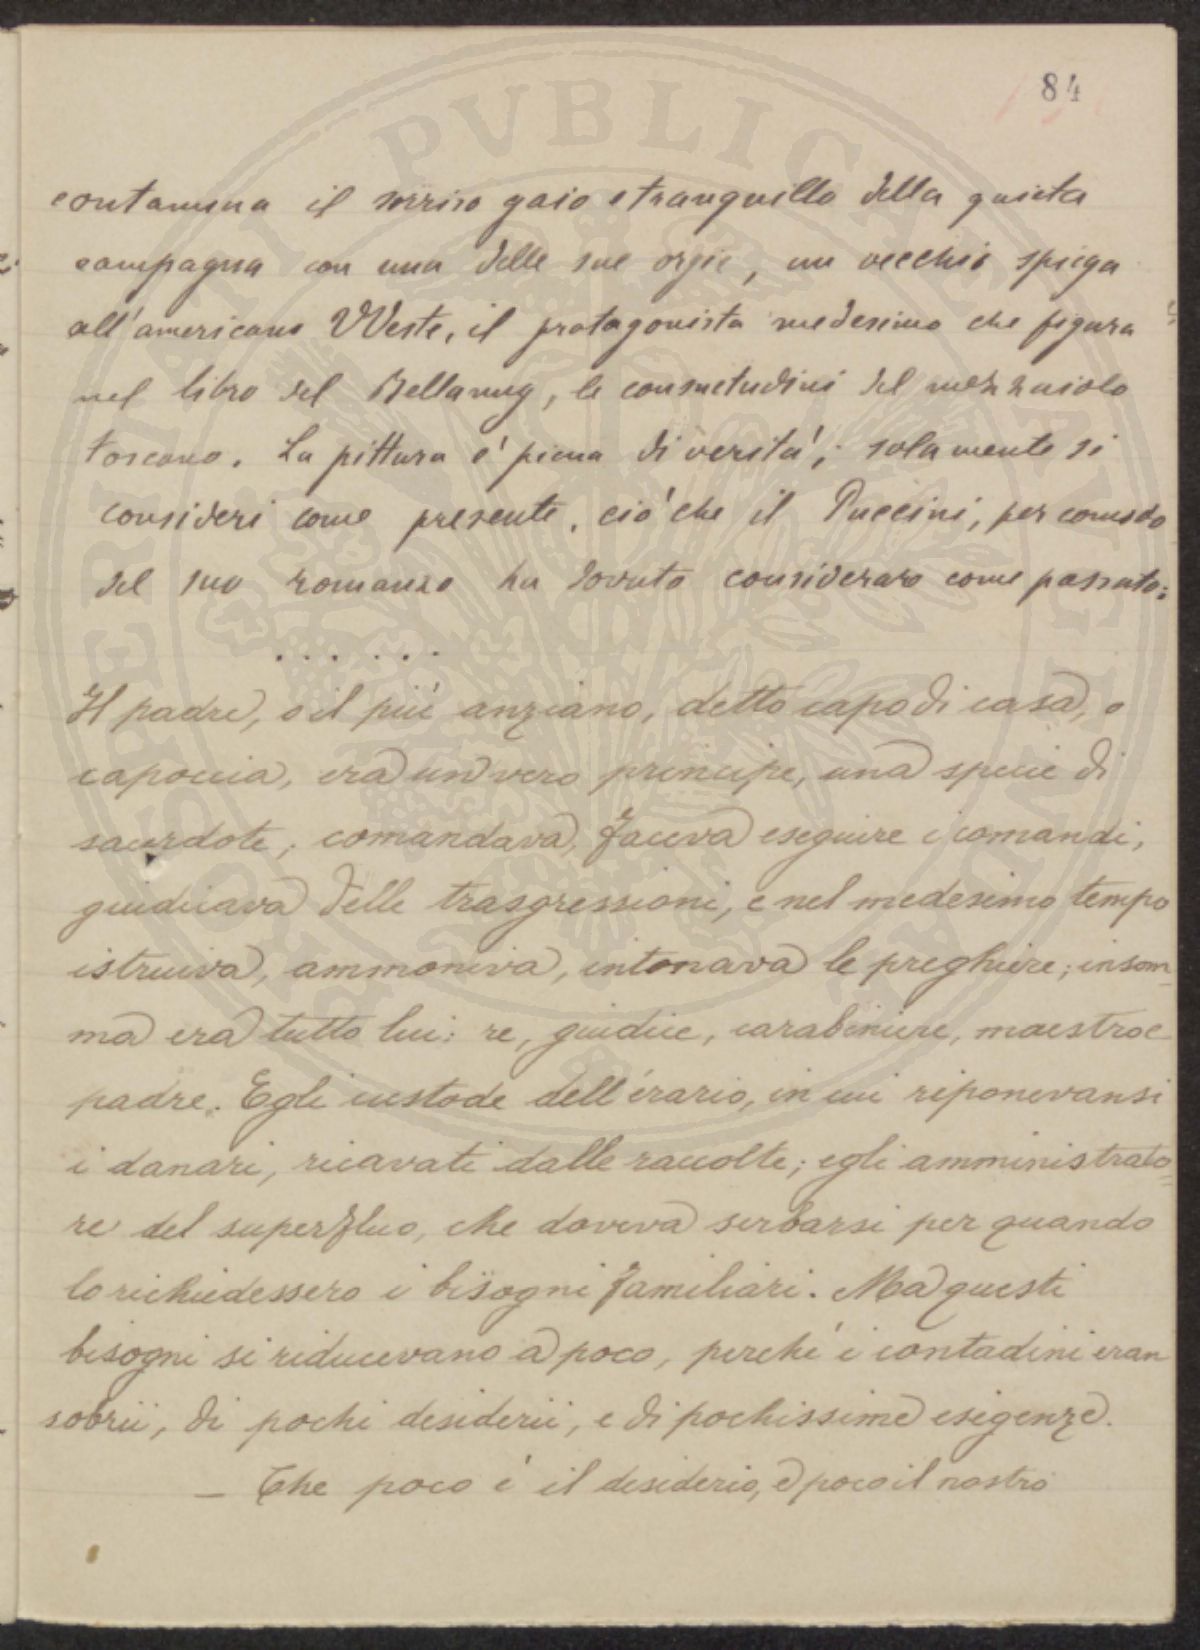 84
contamina il sorriso gaio e tranquillo della quieta
campagna con una delle sue orgie, un vecchio spiega
all'americano VVeste, il protagonista medesimo che figura
nel libro del Bellamy, le consuetudini del mezzaiolo
toscano. La pittura é piena di veritá; solamente si
consideri come presente, ció che il Puccini, per comodo
del suo romanzo ha dovuto considerare come passato:
. . . . . .
Il padre, o il piú anziano, detto capo di casa, o
capoccia, era un vero principe, una specie di
sacerdote; comandava, faceva eseguire i comandi,
giudicava delle trasgressioni, e nel medesimo tempo
istruiva, ammoniva, intonava le preghiere; insom-
ma era tutto lui: re, giudice, carabiniere, maestro e
padre. Egli custode dell'erario, in cui riponevansi
i danari, ricavati dalle raccolte; egli amministrato=
re del superfluo, che doveva serbarsi per quando
lo richiedessero i bisogni familiari. Ma questi
bisogni si riducevano a poco, perché i contadini eran
sobrii, di pochi desiderii, e di pochissime esigenze.
— Che poco é il desiderio, e poco il nostro